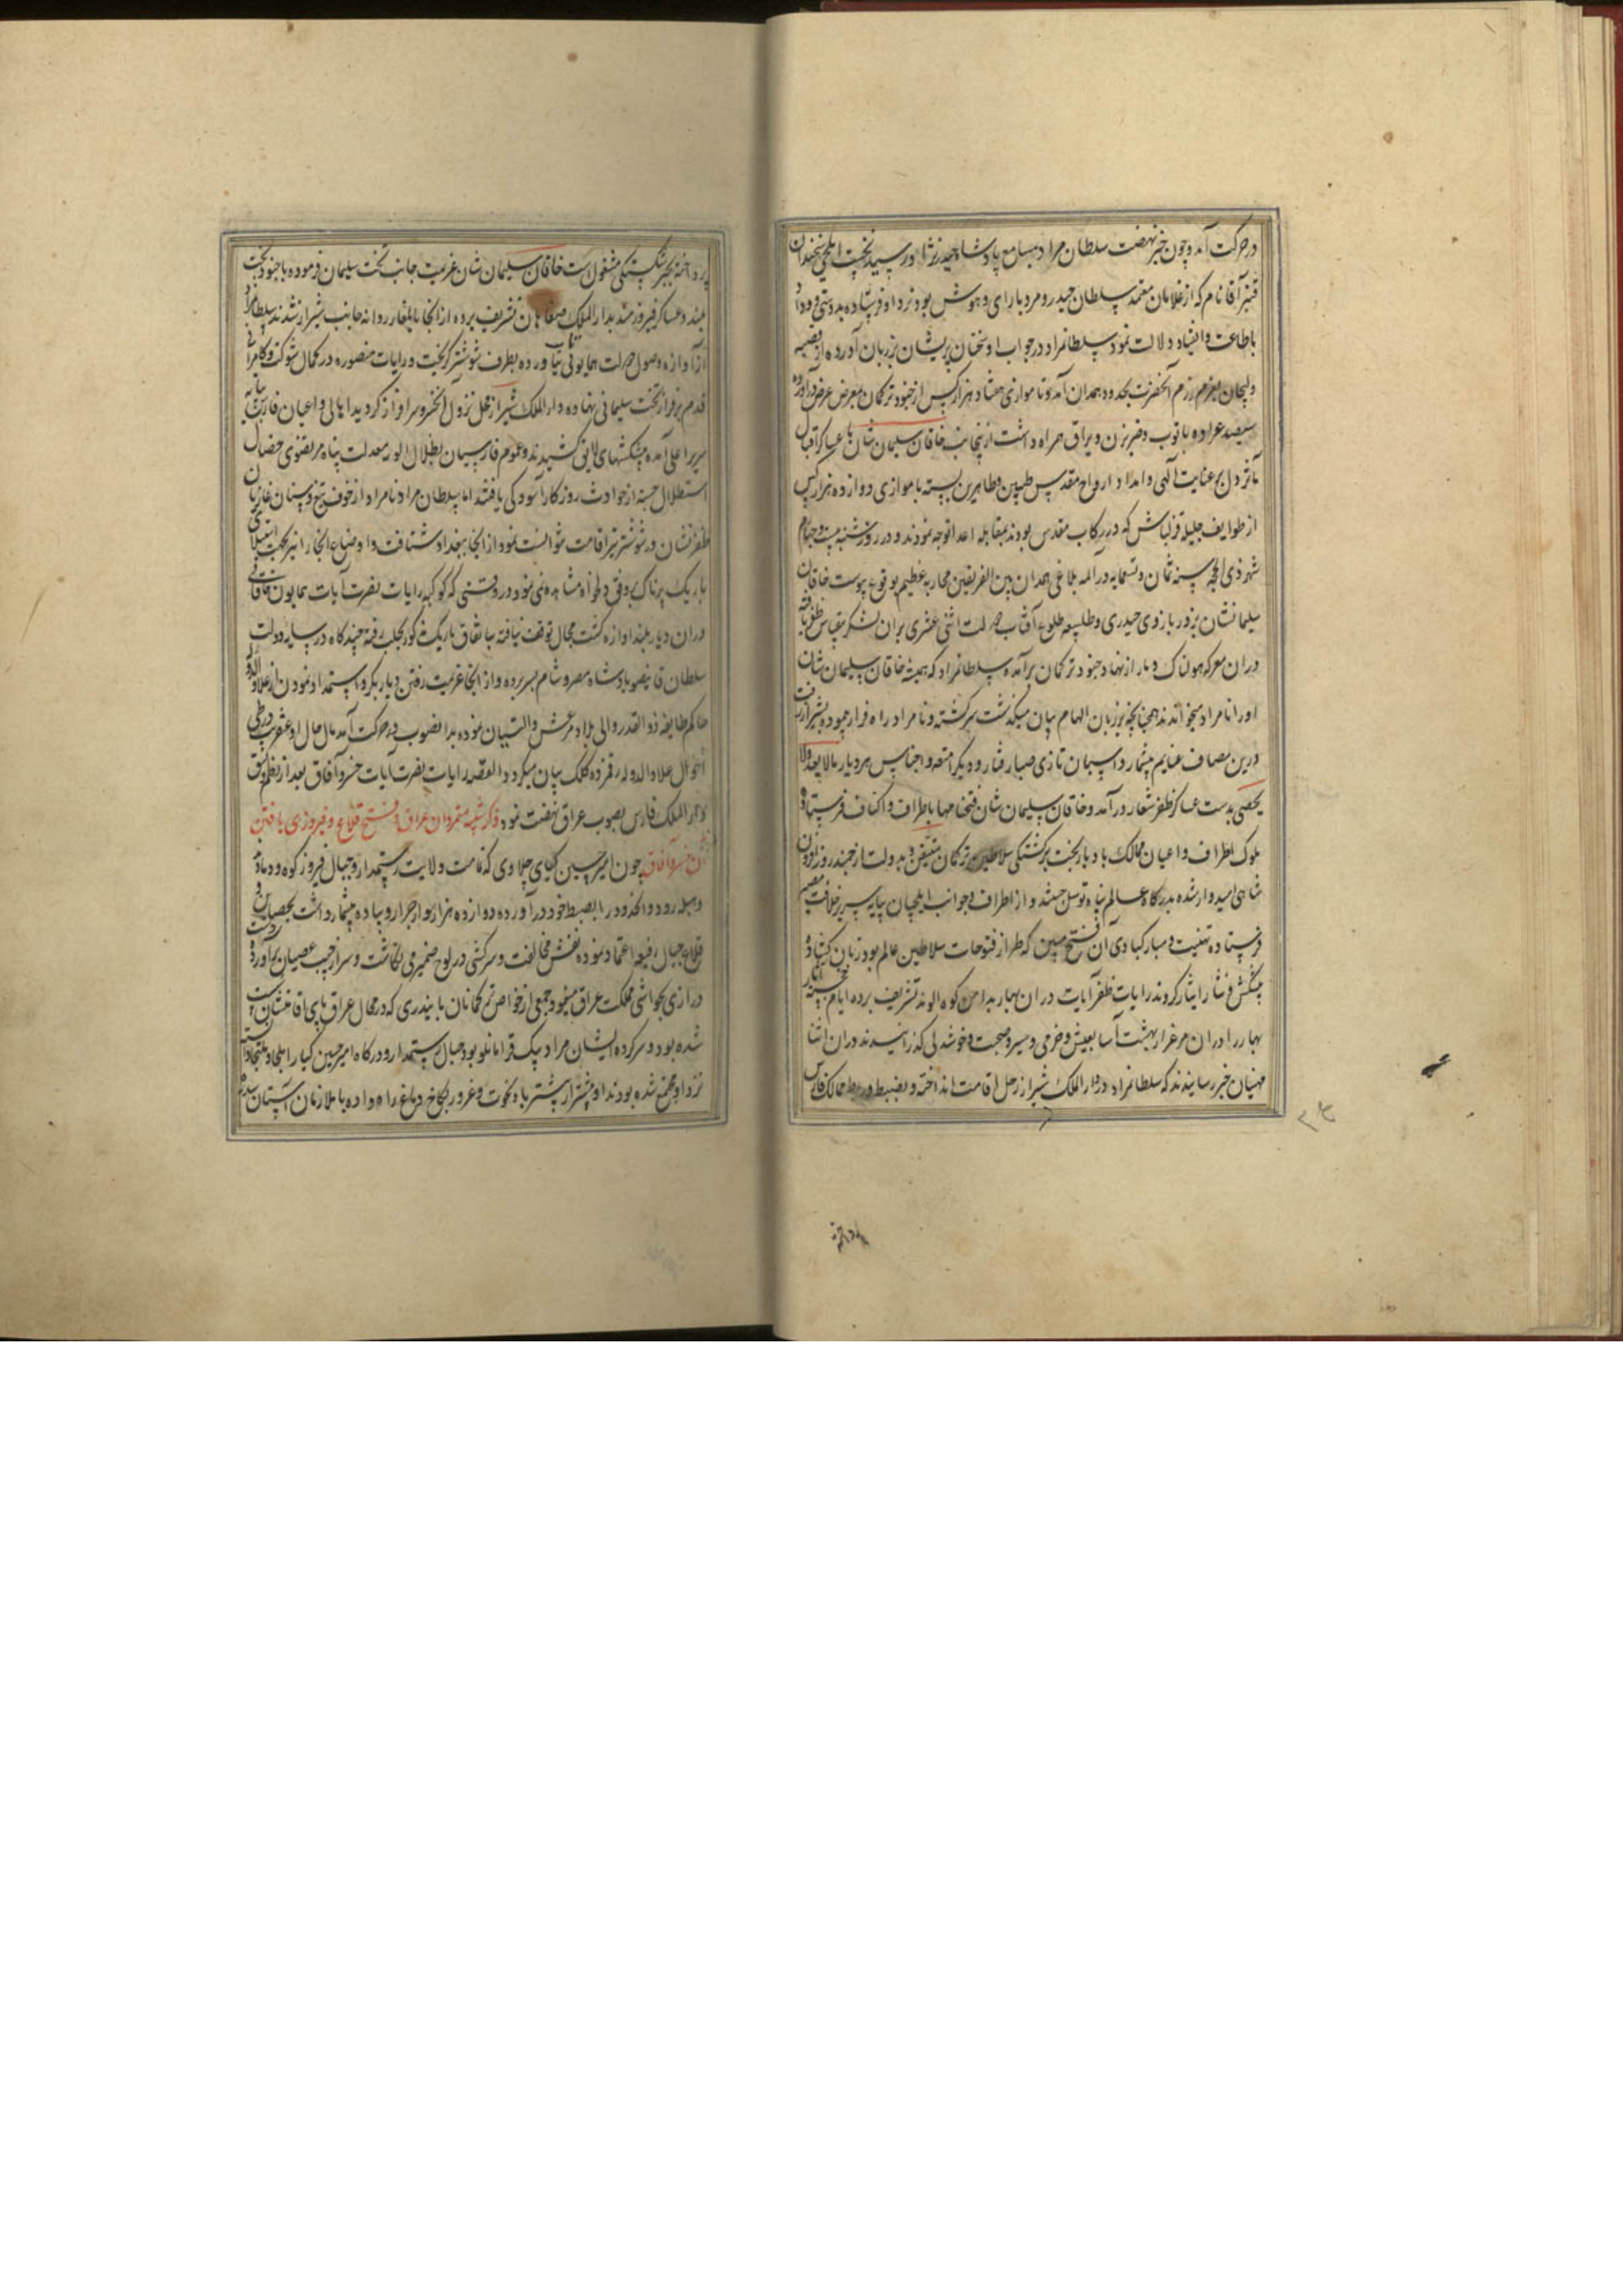 در حرکت آمد و چون خبر نهضت سلطان مراد بمسامع پادشاه حیدر نژاد رسید نخست ایلچی سخندان
قنبر آقا نام که از غلامان معتمد سلطان حیدر و مرد با رای و هوش بود نزد او فرستاده بدوستی و وداد
باطاعت و انقیاد دلالت نمود سلطانمراد در جواب او سخنان پریشان بر زبان آورده از
بعزم رزم آنحضرت بحدود همدان آمد و تا موازی هفتاد هزار کس از جنود ترکمان بمعرض عرض درآورده
سیصد عراده با توب و ضربزن و یراق همراه داشت ازینجانب خاقان سلیمان شان با عساکر اقبال
مآثر دل بر عنایت الهی و امداد ارواح مقدس طیبین و طاهرین بسته با موازی دوازده هزار کس
از طوایف جلیله قزلباش که در رکاب مقدس بودند بمقابله اعدا توجه نمودند و در روز شنبه بیست و چهارم
شهر ذی الحجه سنه ثمان و تسعمایه در المه بلاغی همدان بین الفریقین محاربه عظیم بوقوع پیوست خاقان
سلیمانشان بزور بازوی حیدری و طلیعه طلوع آفتاب دولت اثنی عشری بران لشکر بیقیاس ظفر یافته
دران معرکه هولناک دمار از نهاد جنود ترکمان برآمده سلطانمراد که همیشه خاقان سلیمان شان
او را نامراد میخواندند همچنانچه بر زبان الهام بیان میگذشت برگشته و نامراد راه فرار پیموده بشیراز رفت
درین مصاف غنایم بیشمار و اسبان تازی صبا رفتار و دیگر امتعه و اجناس هر دیار مالا یعد ولا
یحصی بدست عساکر ظفر شعار درآمد و خاقان سلیمان شان فتحنامها باطراف و اکناف فرستاده
ملوک اطراف و اعیان ممالک بادبار بخت برگشتگی سلاطین ترکمان متیقن و بدولت ارجمند روز افزون
شاهی امیدوار شده بدرگاه عالم پناه توسل جستند و از اطراف و جوانب ایلچیان بپایه سریر خلافت مصیر
فرستاده تهنیت و مبارکبادی آن فتح مبین که طراز فتوحات سلاطین عالم بود زبان گشاده
پیشکش و نثار ایثار کردند رایات ظفر آیات دران بهار بدامن کوه الوند تشریف برده ایام خجسته آثار
بهار را دران مرغزار بهشت آسا بعیش و خرمی و سیر و صحبت و خوشدلی گذرانیدند دران اثنا
منهیان خبر رسانیدند که سلطانمراد در دار الملک شیراز رحل اقامت انداخته و بضبط و ربط ممالک فارس
پرداخته
پرداخته بجبر شکستگی مشغول است خاقان سلیمان شان عزیمت جانب تخت سلیمان فرموده با جنود بخت
بلند و عساکر فیروزمند بدار الملک صفاهان تشریف برده از آنجا بایلغار روانه جانب شیراز شدند سلطانمراد
از آوازه وصول دولت همایونی تاب نیاورده بطرف شوشتر گریخت و رایات منصوره در کمال شوکت و کامرانی
قدم بر فراز تخت سلیمانی نهاده دار الملک شیراز محل نزول آنخسرو سرافراز گردید اهالی و اعیان فارس بپایه
سریر اعلی آمده پیشکشهای لایق کشیدند و عموم فارسیان بظلال الویه معدلت پناه مرتضوی خصال
استظلال جسته از حوادث روزگار آسودگی یافتند اما سلطان مراد نامراد از خوف تیغ و سنان غازیان
ظفر نشان در شوشتر نیز اقامت نتوانست نمود از آنجا ببغداد شتافت و اوضاع آنجا را نیز بجهت استیلای
باریک پرناک بر وفق دلخواه مشاهده نمی نمود و در وقتی که کوکبه رایات نصرت آیات همایون خاقانی
دران دیار بلند آوازه گشت مجال توقف نیافته باتفاق باریک مذکور بحلب رفته چندگاه در سایه دولت
سلطان قانصو پادشاه مصر و شام بسر برده و از آنجا عزیمت رفتن دیاربکر و استمداد نمودن از علاء الدوله
حاکم طایفه ذوالقدر والی بلاد مرعش و البستان نموده بدانصوب در حرکت آمد مآل حال او عنقریب در طی
احوال علاء الدوله رقمزده کلک بیان میگردد القصه رایات نصرت آیات خسرو آفاق بعد از نظم و نسق
دار الملک فارس بصوب عراق نهضت نمود ذکر تنبیه متمردان عراق و فتح قلاع و فیروزی یافتن
آن خسرو آفاق چون امیر حسین کیای چلاوی که تمامت ولایت رستمدار و جبال فیروزکوه و دماوند
و هبله رود و آنحدود را بضبط خود درآورده دوازده هزار سوار جرار و پیاده بیشمار داشت بحصانت
قلاع جبال رفیعه اعتماد نموده نقش مخالفت و سرکشی در لوح ضمیر می نگاشت و سر از جیب عصیان برآورده دست
درازی بحواشی مملکت عراق مینمود و جمعی از خواص ترکمانان بایندری که در محال عراق پای اقامتشان سست
شده بود و سرکرده ایشان مراد بیک قرامانلو بود جبال رستمدار و درگاه امیر حسین کیا را ملجأ و ملتجا دانسته
نزد او مجتمع شده بودند او بیشتر از پیشتر باد نخوت و غرور بکاخ دماغ راه داده با ملازمان آستان سدره